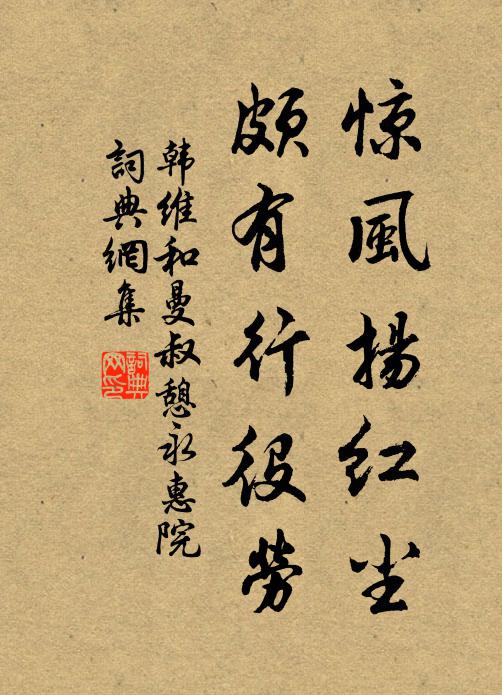 惊風揚红尘
頗有行役勞
韩维和曼叔憩永惠院
詞典網集
詞典网印